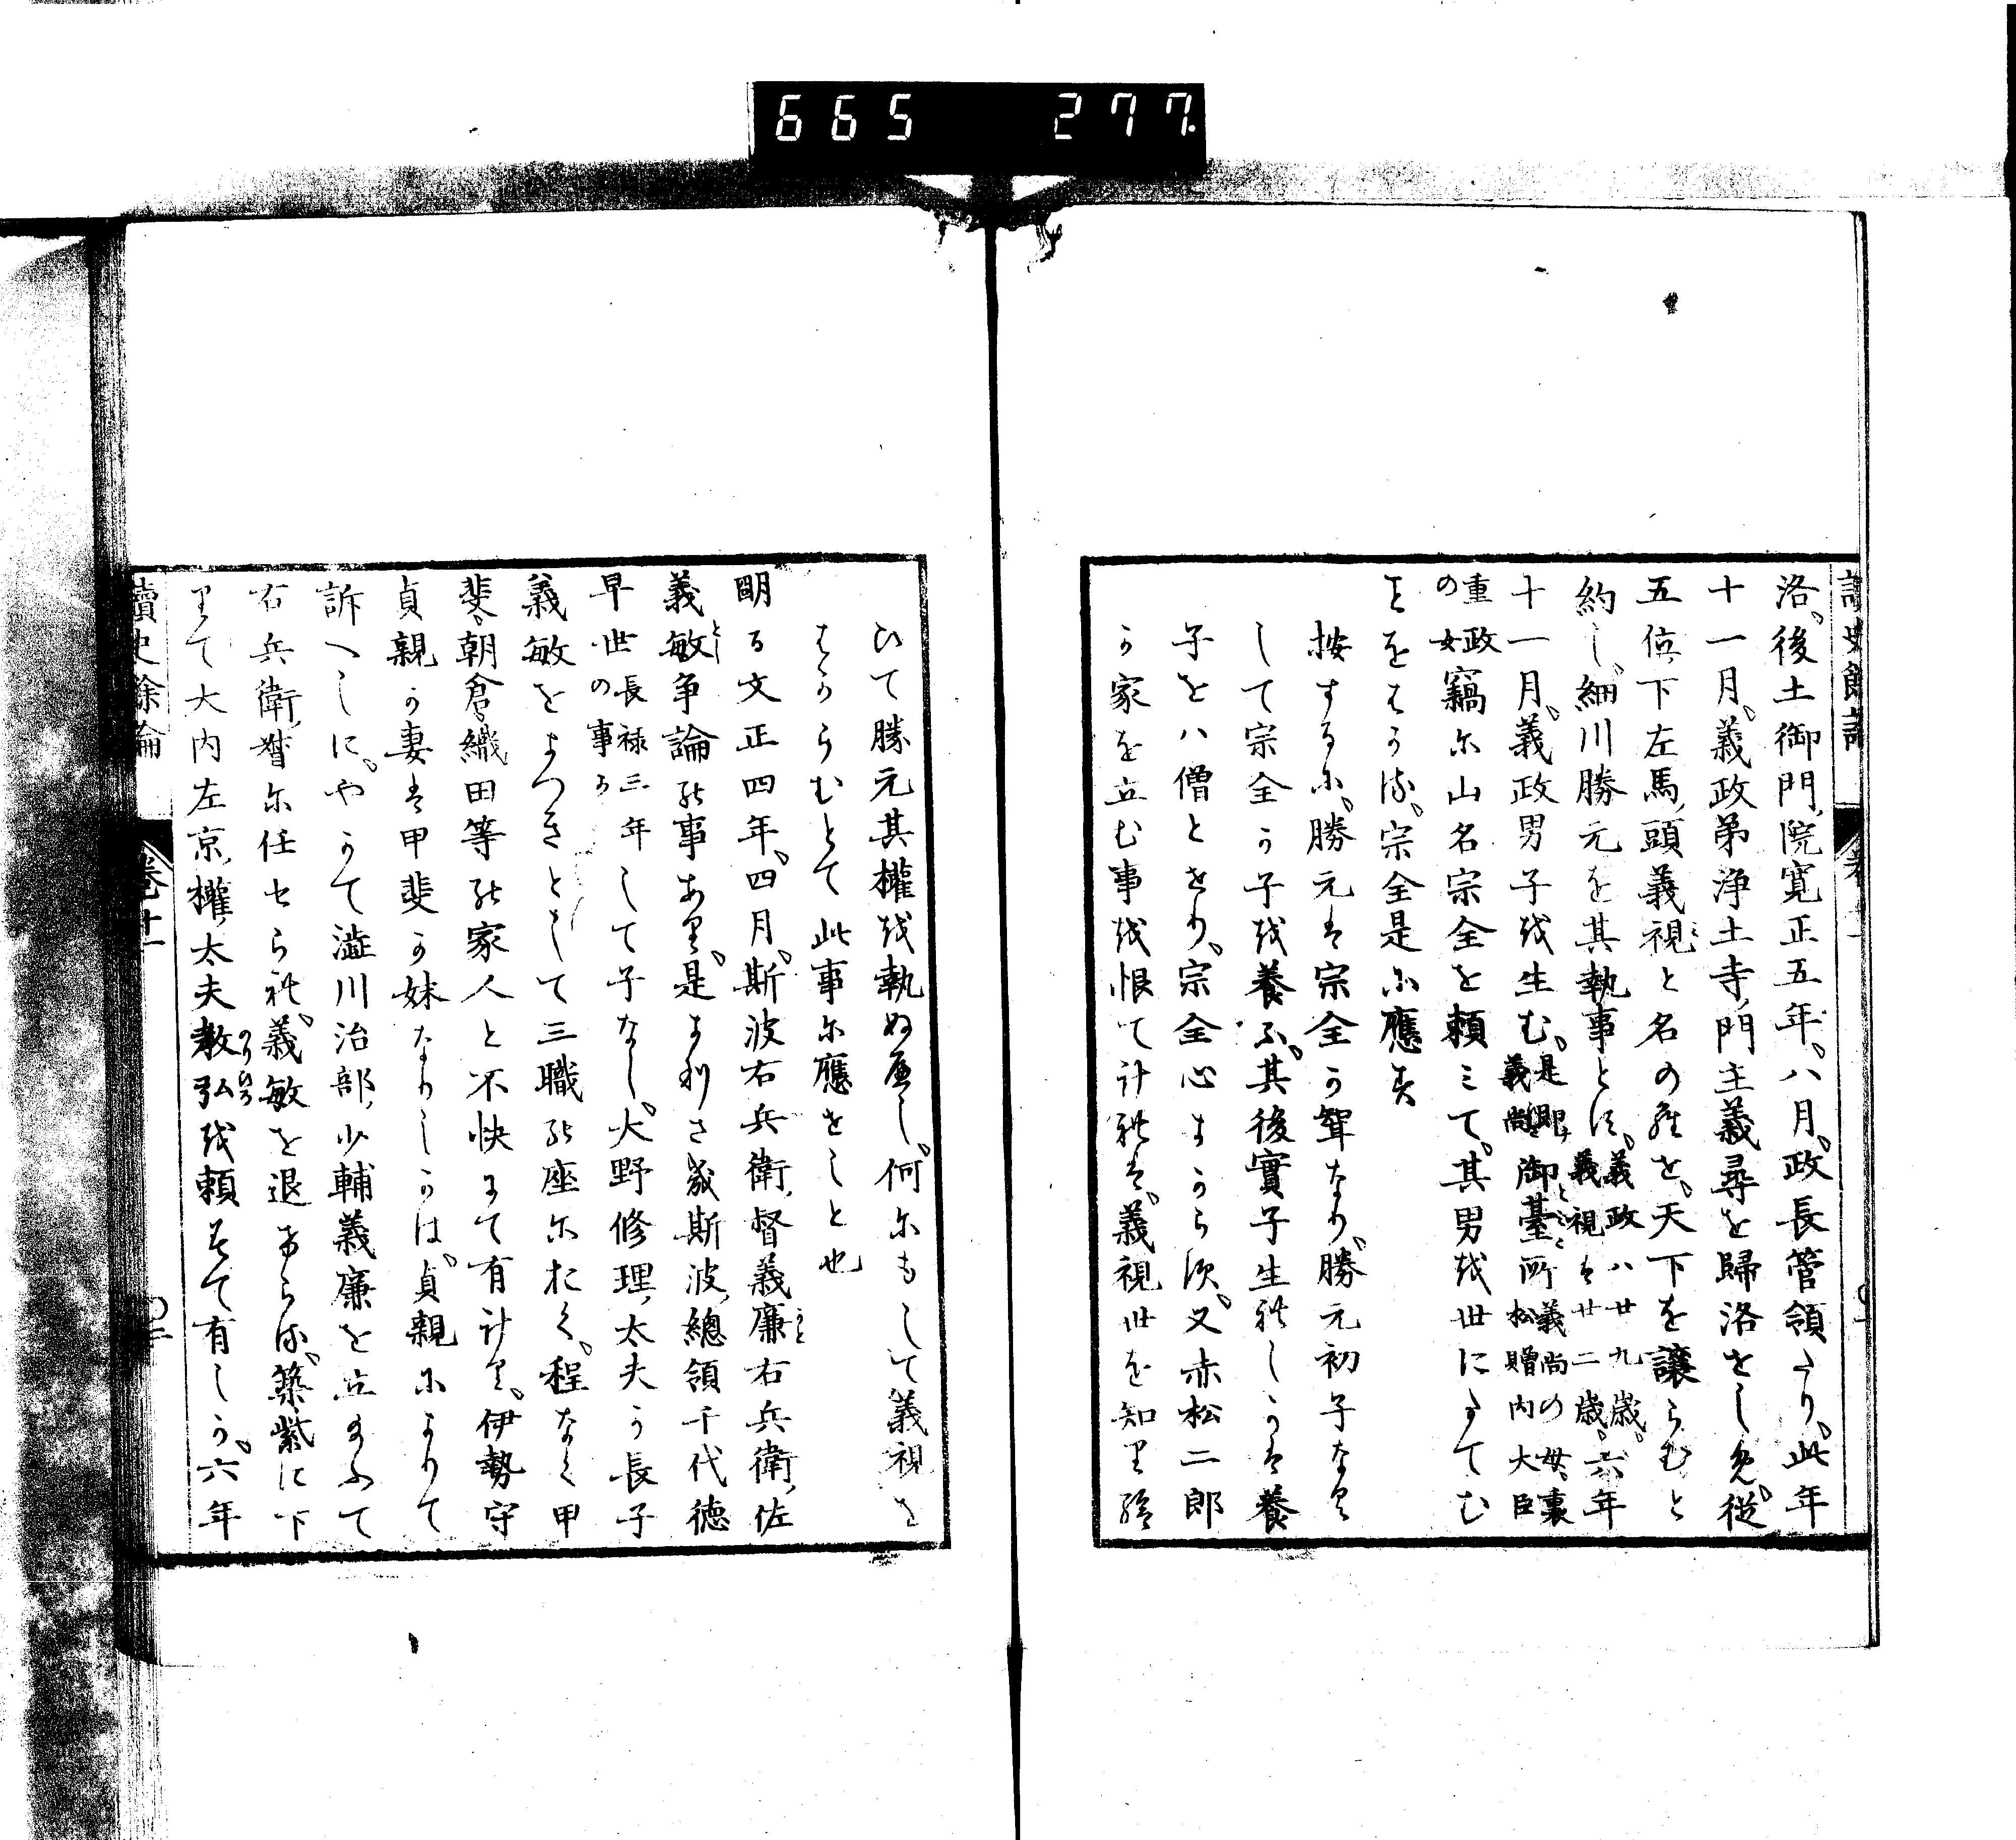 665 277.
洛、後土御門院寛正五年、八月、政長管領たり、此年
十一月、義政弟浄土寺門主義尋を歸洛をしめ、從
五位下左馬頭義視と名のらせ、天下を讓らむと
約し、細川勝元を其執事とす、義政ハ廿九歳、義視は廿二歳、六年
十一月、義政男子を生む、是則義尚、御臺所義尚の母、裏松贈内大臣
重政の女竊に山名宗全を頼ミて、其男を世にたてむ
事をはかる、宗全是に應す
按するに、勝元は宗全か聟なり、勝元初子なく
して宗全か子を養ふ、其後實子生れしかは養
子をハ僧とせり、宗全心よからす、又赤松二郎
か家を立む事を恨て計れは、義視世を知り給
ひて勝元其權を執ぬへし、何にもして義視を
はからむとて此事に應せしと也
明る文正四年、四月、斯波右兵衛督義廉右兵衛佐
義敏争論の事あり、是よりさき斯波總領千代徳
早世長禄三年の事かして子なし、大野修理太夫か長子
義敏をよつきとして三職の座におく、程なく甲
斐朝倉織田等の家人と不快にて有けり、伊勢守
貞親か妻は甲斐か妹なりしかは、貞親によりて
訴へしに、やかて澁川治部少輔義廉を立給ふて
右兵衛督に任せられ、義敏を退けらる、築紫に下
りて大内左京權太夫教弘を頼ミて有しか、六年
讀史餘論 卷十一